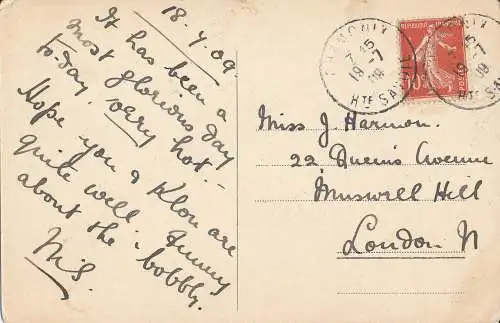 18.7.09
It has been a
most glorious day
to-day, very hot.
Hope you & Klon are
quite well. Funny
about the bobbly.
Miss J Harmon.
22 Queen's Avenue
Muswell Hill
London N
CHAMONIX
7 45
18 -7
09
HTE SAVOIE